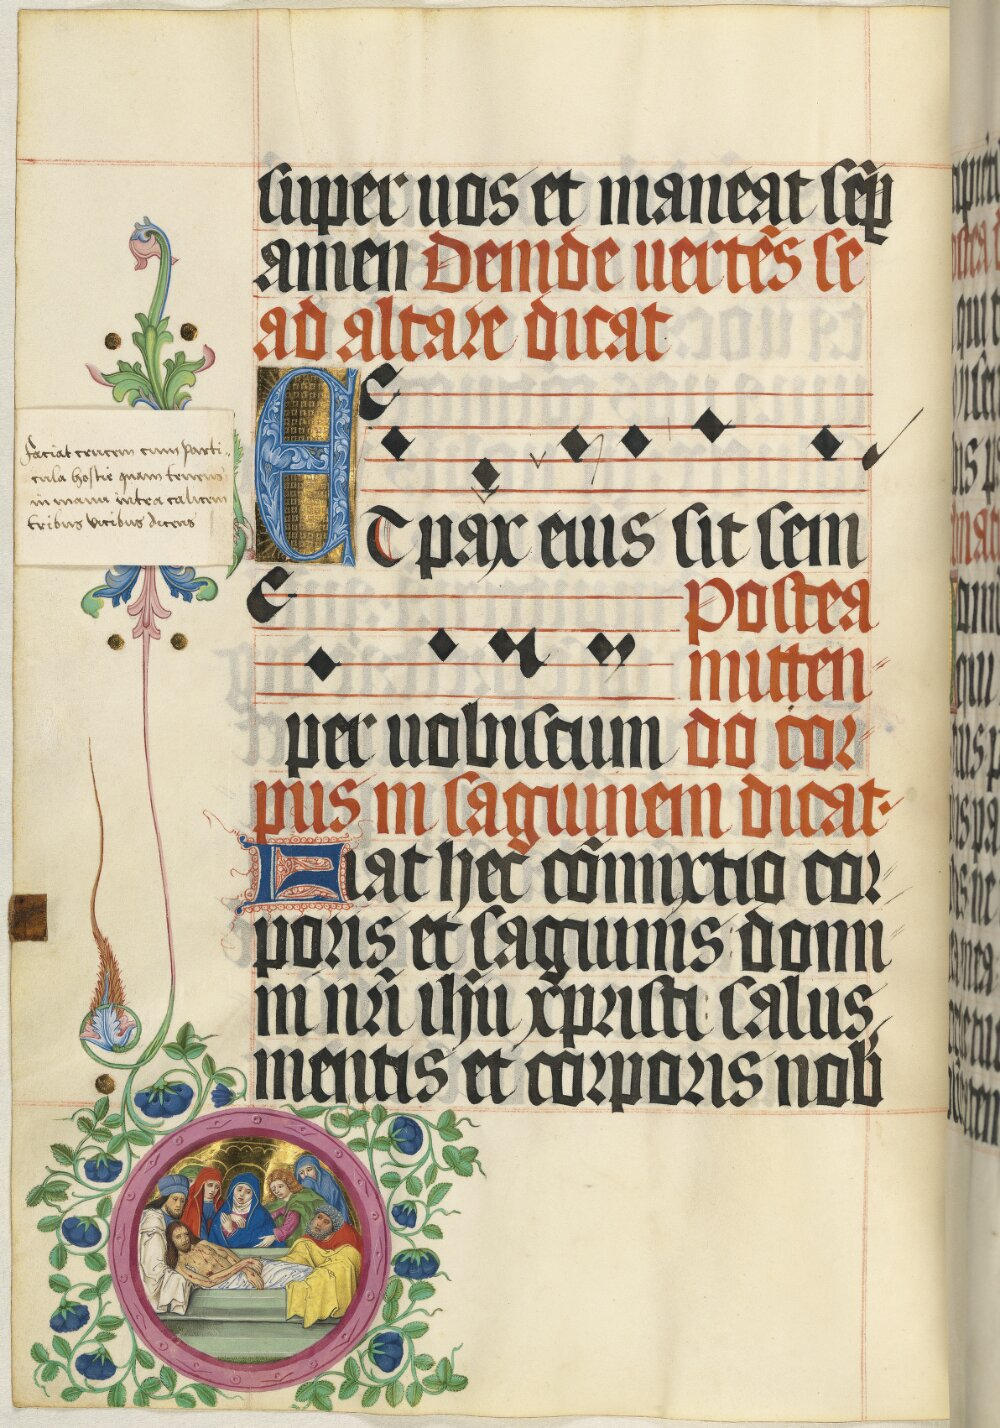 super uos et maneat semꝑ
amen Deinde uertẽs se
ad altare dicat
ET pax eius sit sem
Postea
mitten
per uobiscum do cor
pus in saguinem dicat
Fiat hec cõmixtio cor
poris et saguinis domi
ni nr̃i ihũ xp̃risti salus
mentis et corporis nob̃
faciat crucem cum parti
cula hostie quam
in manu intra calicem
tribus vicibus dicens